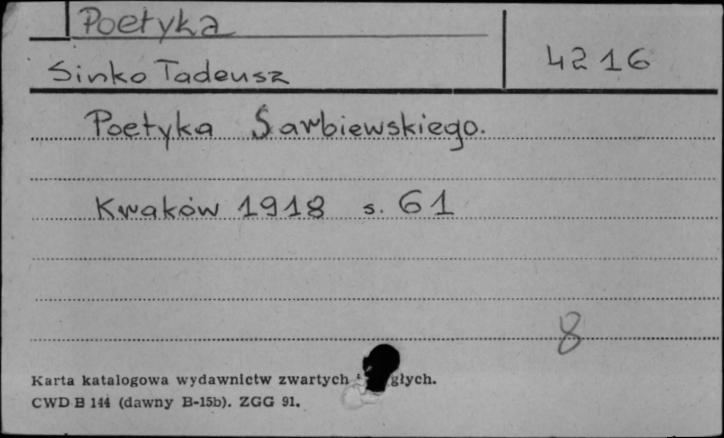 Poetyka
Sinko Tadeusz
4216
Poetyka Sarbiewskiego.
Kraków 1918 s. 61
8
Karta katalogowa wydawnictw zwartych
CWD B 144 (dawny B-15b). ZGG 91.